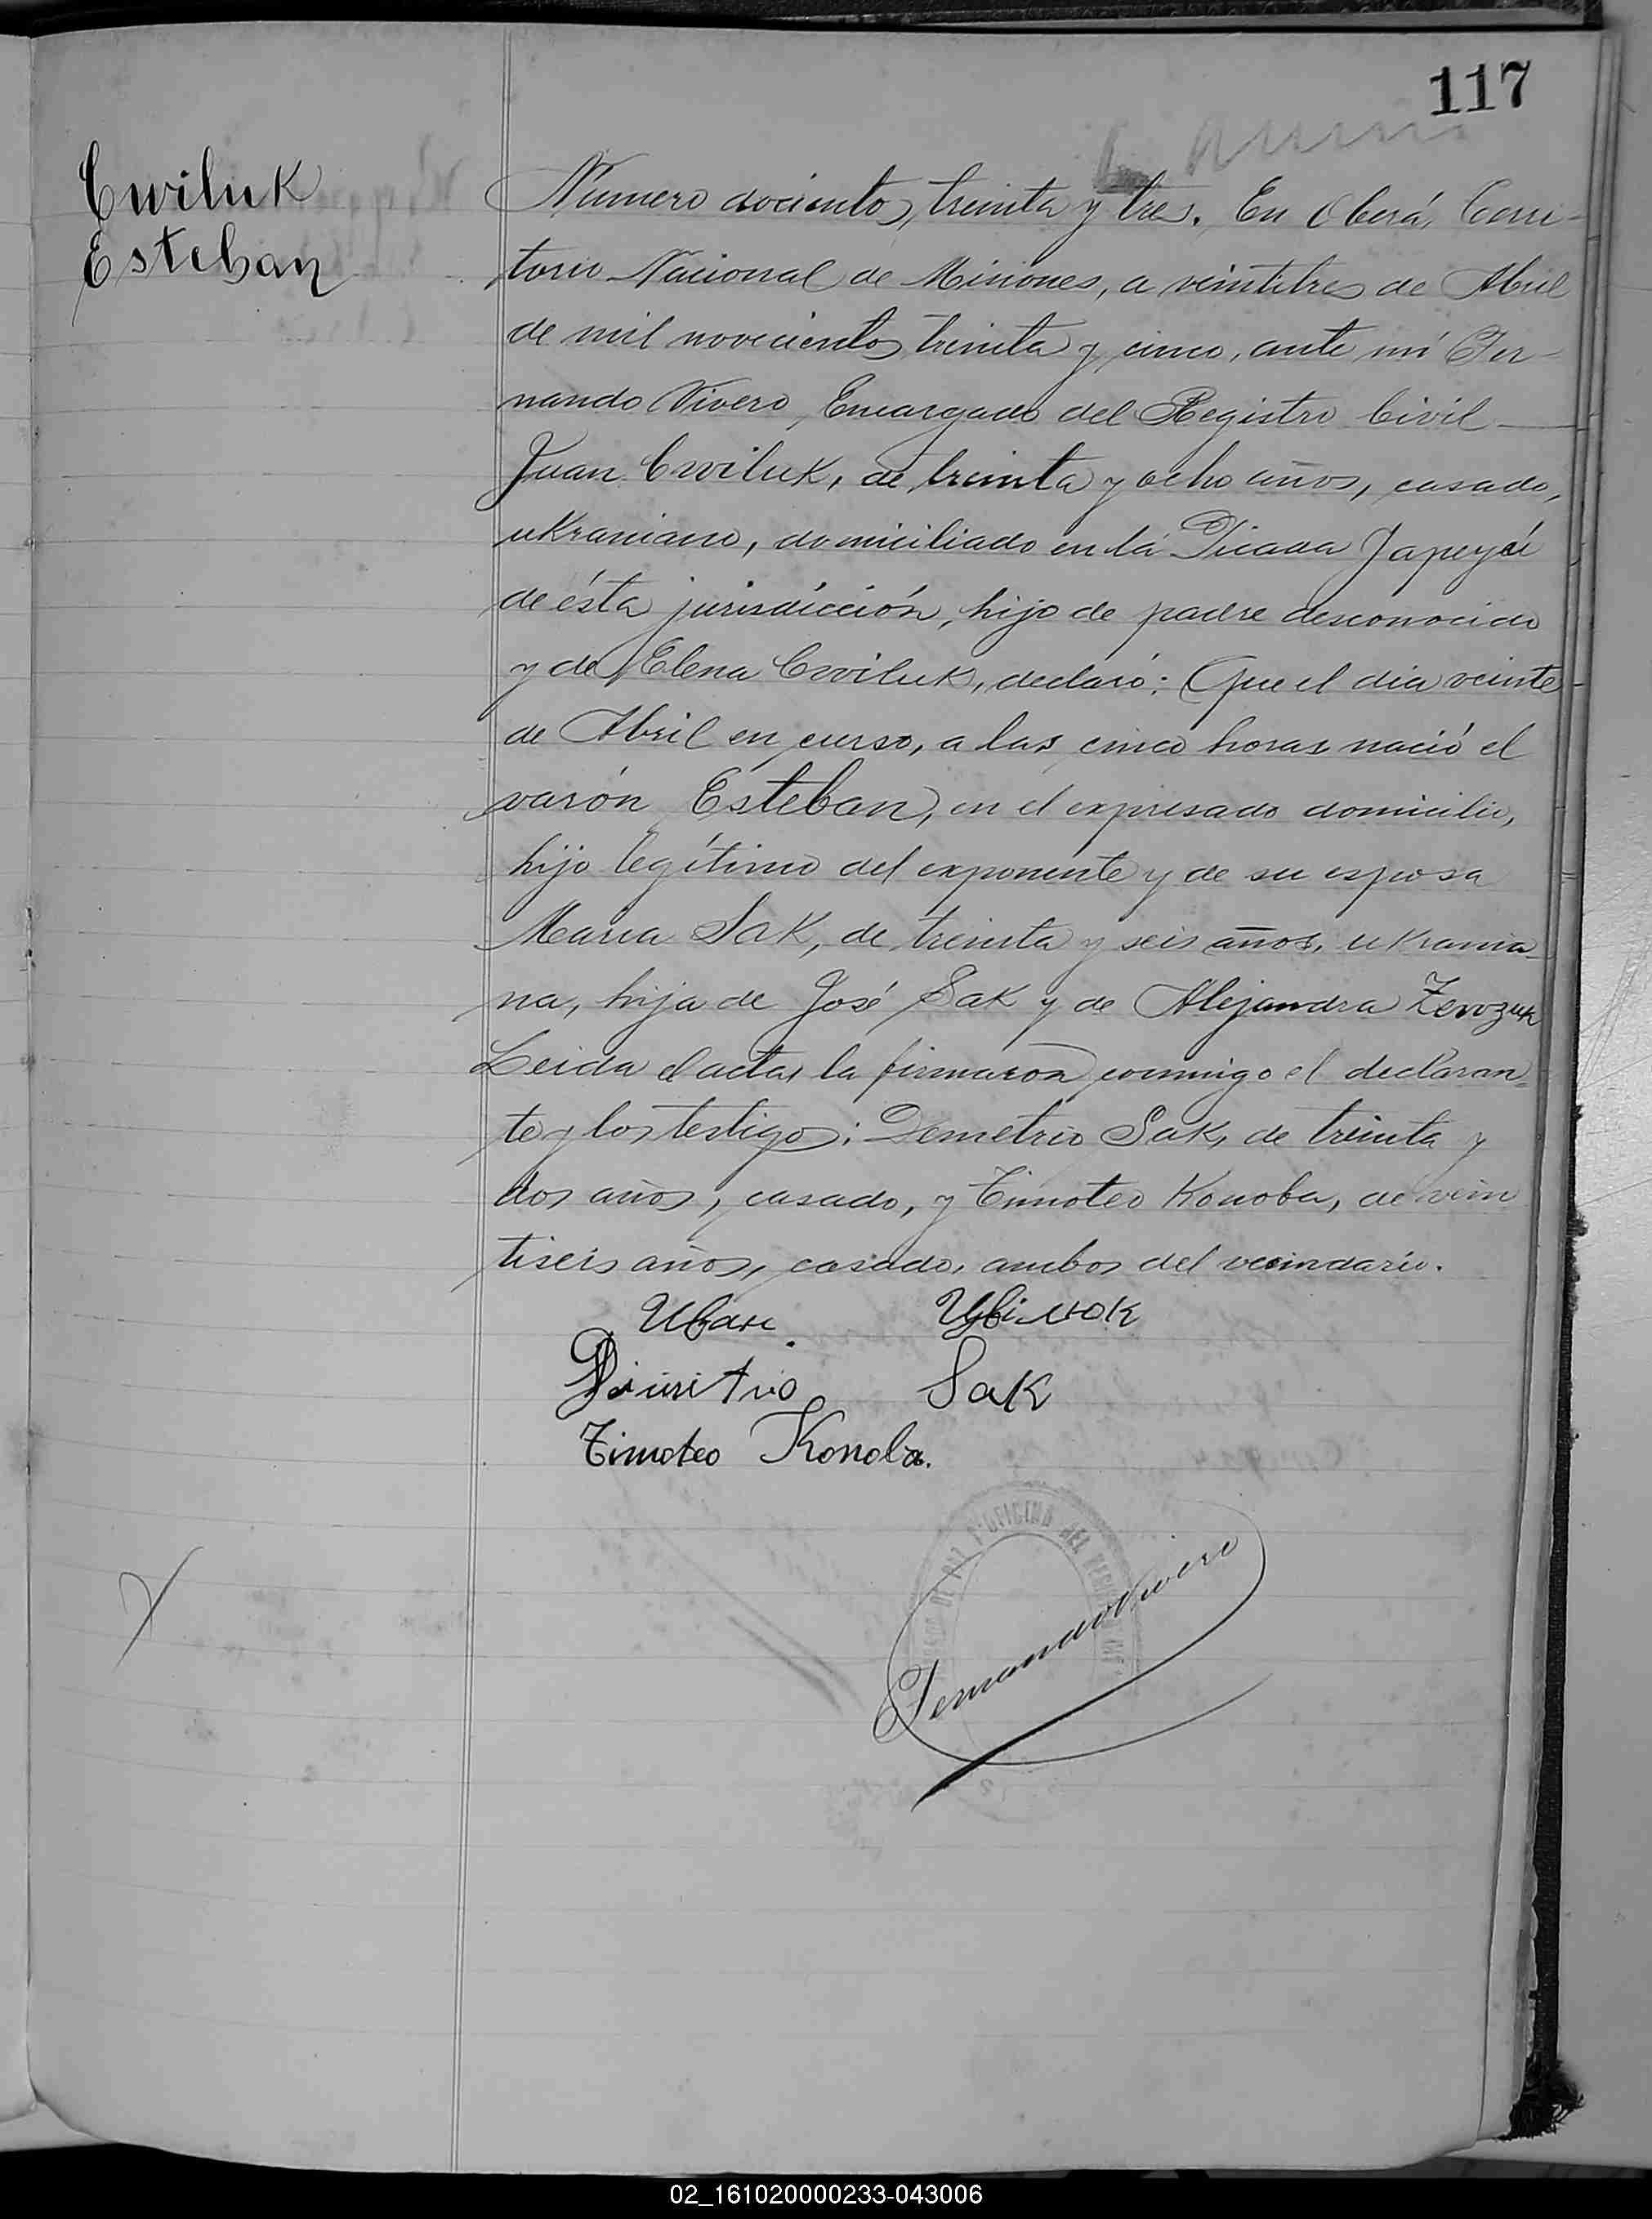 117
Cwiluk
Esteban
Numero dociento, treinta y tres. En Oberá, Terri-
torio Nacional de Misiones, a veintitres de Abril
de mil novecientos treinta y cinco, ante mí Fer-
nando Vivero, Encargado del Registro Civil
Juan Cwiluk, de treinta y ocho años, casado,
ukraniano, domiciliado en la Picada Yapeyú
de ésta jurisdicción, hijo de padre desconocido
y de Elena Cwiluk, declaró: Que el dia veinte
de Abril en curso, a las cinco horas nació el
varón Esteban, en el expresado domicilio,
hijo legítimo del exponente y de su esposa
Maria Sak, de treinta y seis años, ukrania-
na, hija de José Sak y de Alejandra Zevozuk
Leida el acta, la firmaron conmigo el declaran=
te y los testigos: Demetrio Sak, de treinta y
dos años, casado, y Timoteo Konoba, de vein
tiseis años, casado, ambos del vecindario.
Иван Цвілюк
Dimitrio Sak
Timoteo Konoba.
Fernando Vivero
02_161020000233-043006